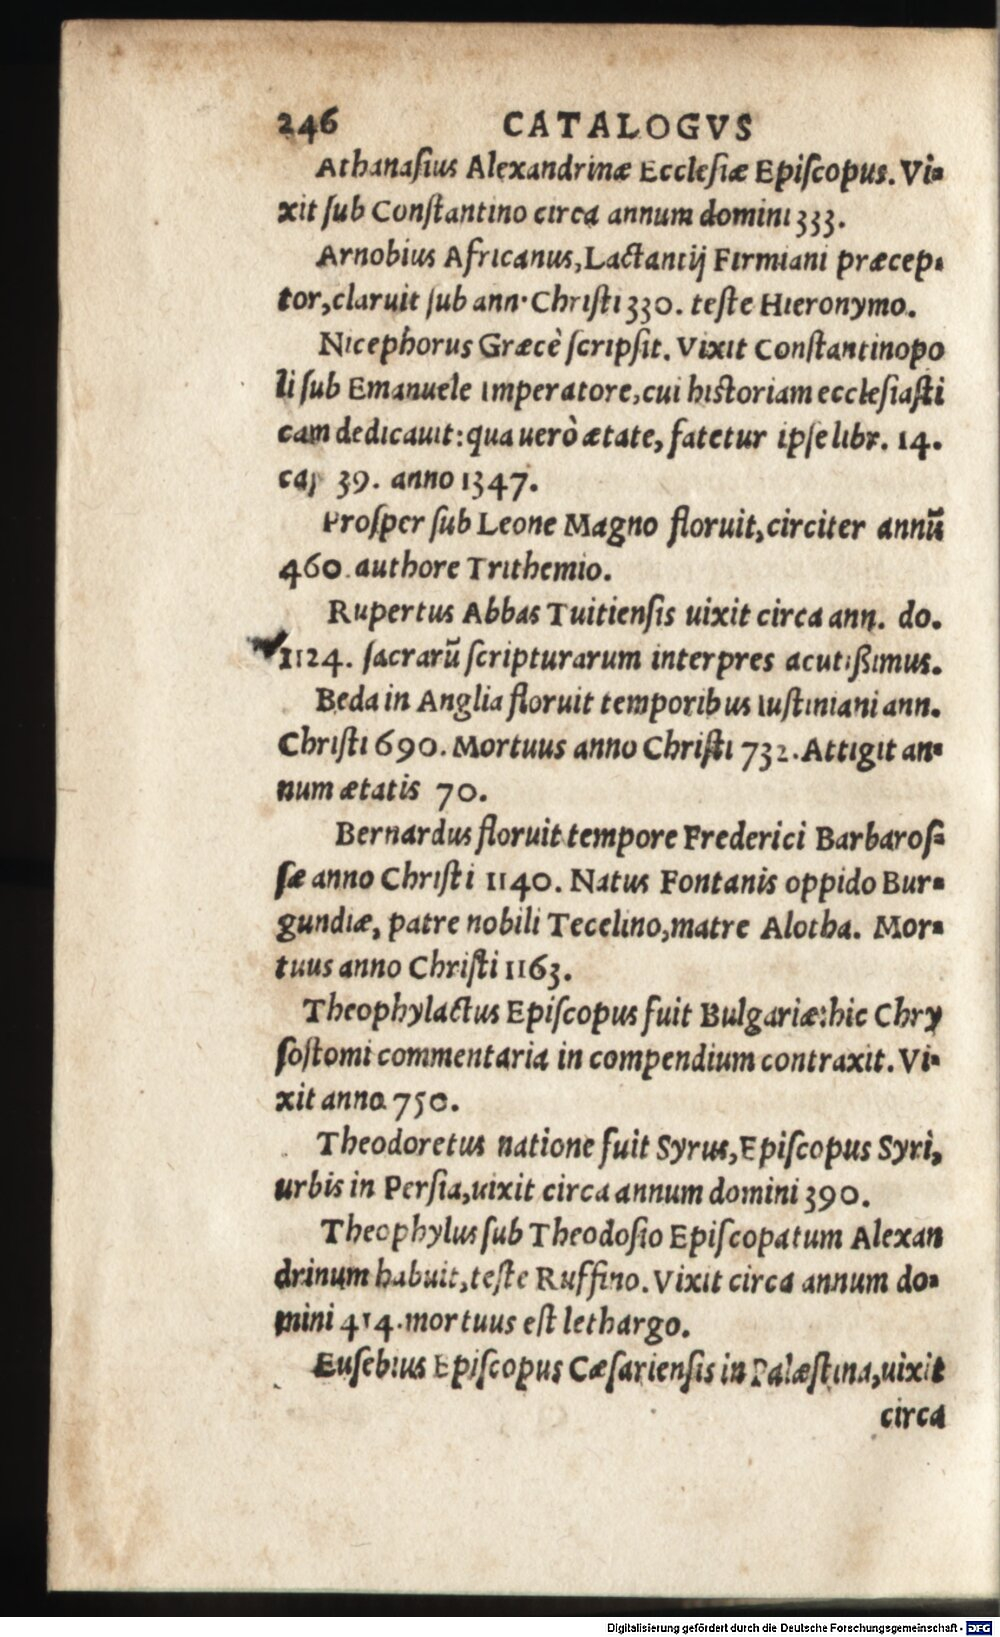 246 CATALOGVS
Athanaſius Alexandrinæ Eccleſiæ Epiſcopus. Vi-
xit ſub Conſtantino circa annum domini 333.
Arnobius Africanus, Lactantij Firmiani præcep-
tor, claruit ſub ann. Chriſti 330. teſte Hieronymo.
Nicephorus Græcè ſcripſit. Vixit Conſtantinopo
li ſub Emanuele imperatore, cui hiſtoriam eccleſiaſti
cam dedicauit: qua uerò ætate, fatetur ipſe libr. 14.
cap 39. anno 1347.
Proſper ſub Leone Magno floruit, circiter annũ
460. authore Trithemio.
Rupertus Abbas Tuitienſis uixit circa ann. do.
1124. ſacrarũ ſcripturarum interpres acutißimus.
Beda in Anglia floruit temporibus iuſtiniani ann.
Chriſti 690. Mortuus anno Chriſti 732. Attigit an-
num ætatis 70.
Bernardus floruit tempore Frederici Barbaroſ-
ſæ anno Chriſti 1140. Natus Fontanis oppido Bur-
gundiæ, patre nobili Tecelino, matre Alotha. Mor-
tuus anno Chriſti 1163.
Theophylactus Epiſcopus fuit Bulgariæ: hic Chry
ſoſtomi commentaria in compendium contraxit. Vi-
xit anno 750.
Theodoretus natione fuit Syrus, Epiſcopus Syri,
urbis in Perſia, uixit circa annum domini 390.
Theophylus ſub Theodoſio Epiſcopatum Alexan
drinum habuit, teſte Ruffino. Vixit circa annum do-
mini 414. mortuus eſt lethargo.
Euſebius Epiſcopus Cæſarienſis in Palæſtina, uixit
circa
Digitalisierung gefördert durch die Deutsche Forschungsgemeinschaft - DFG